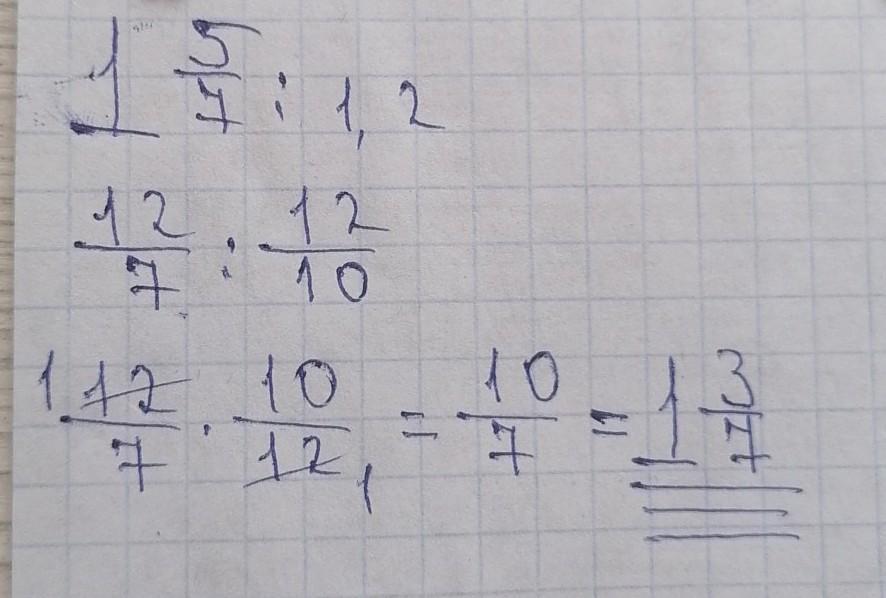 1 5/7 : 1,2
12/7 : 12/10
1 12/7 · 10/12 1 = 10/7 = 1 3/7